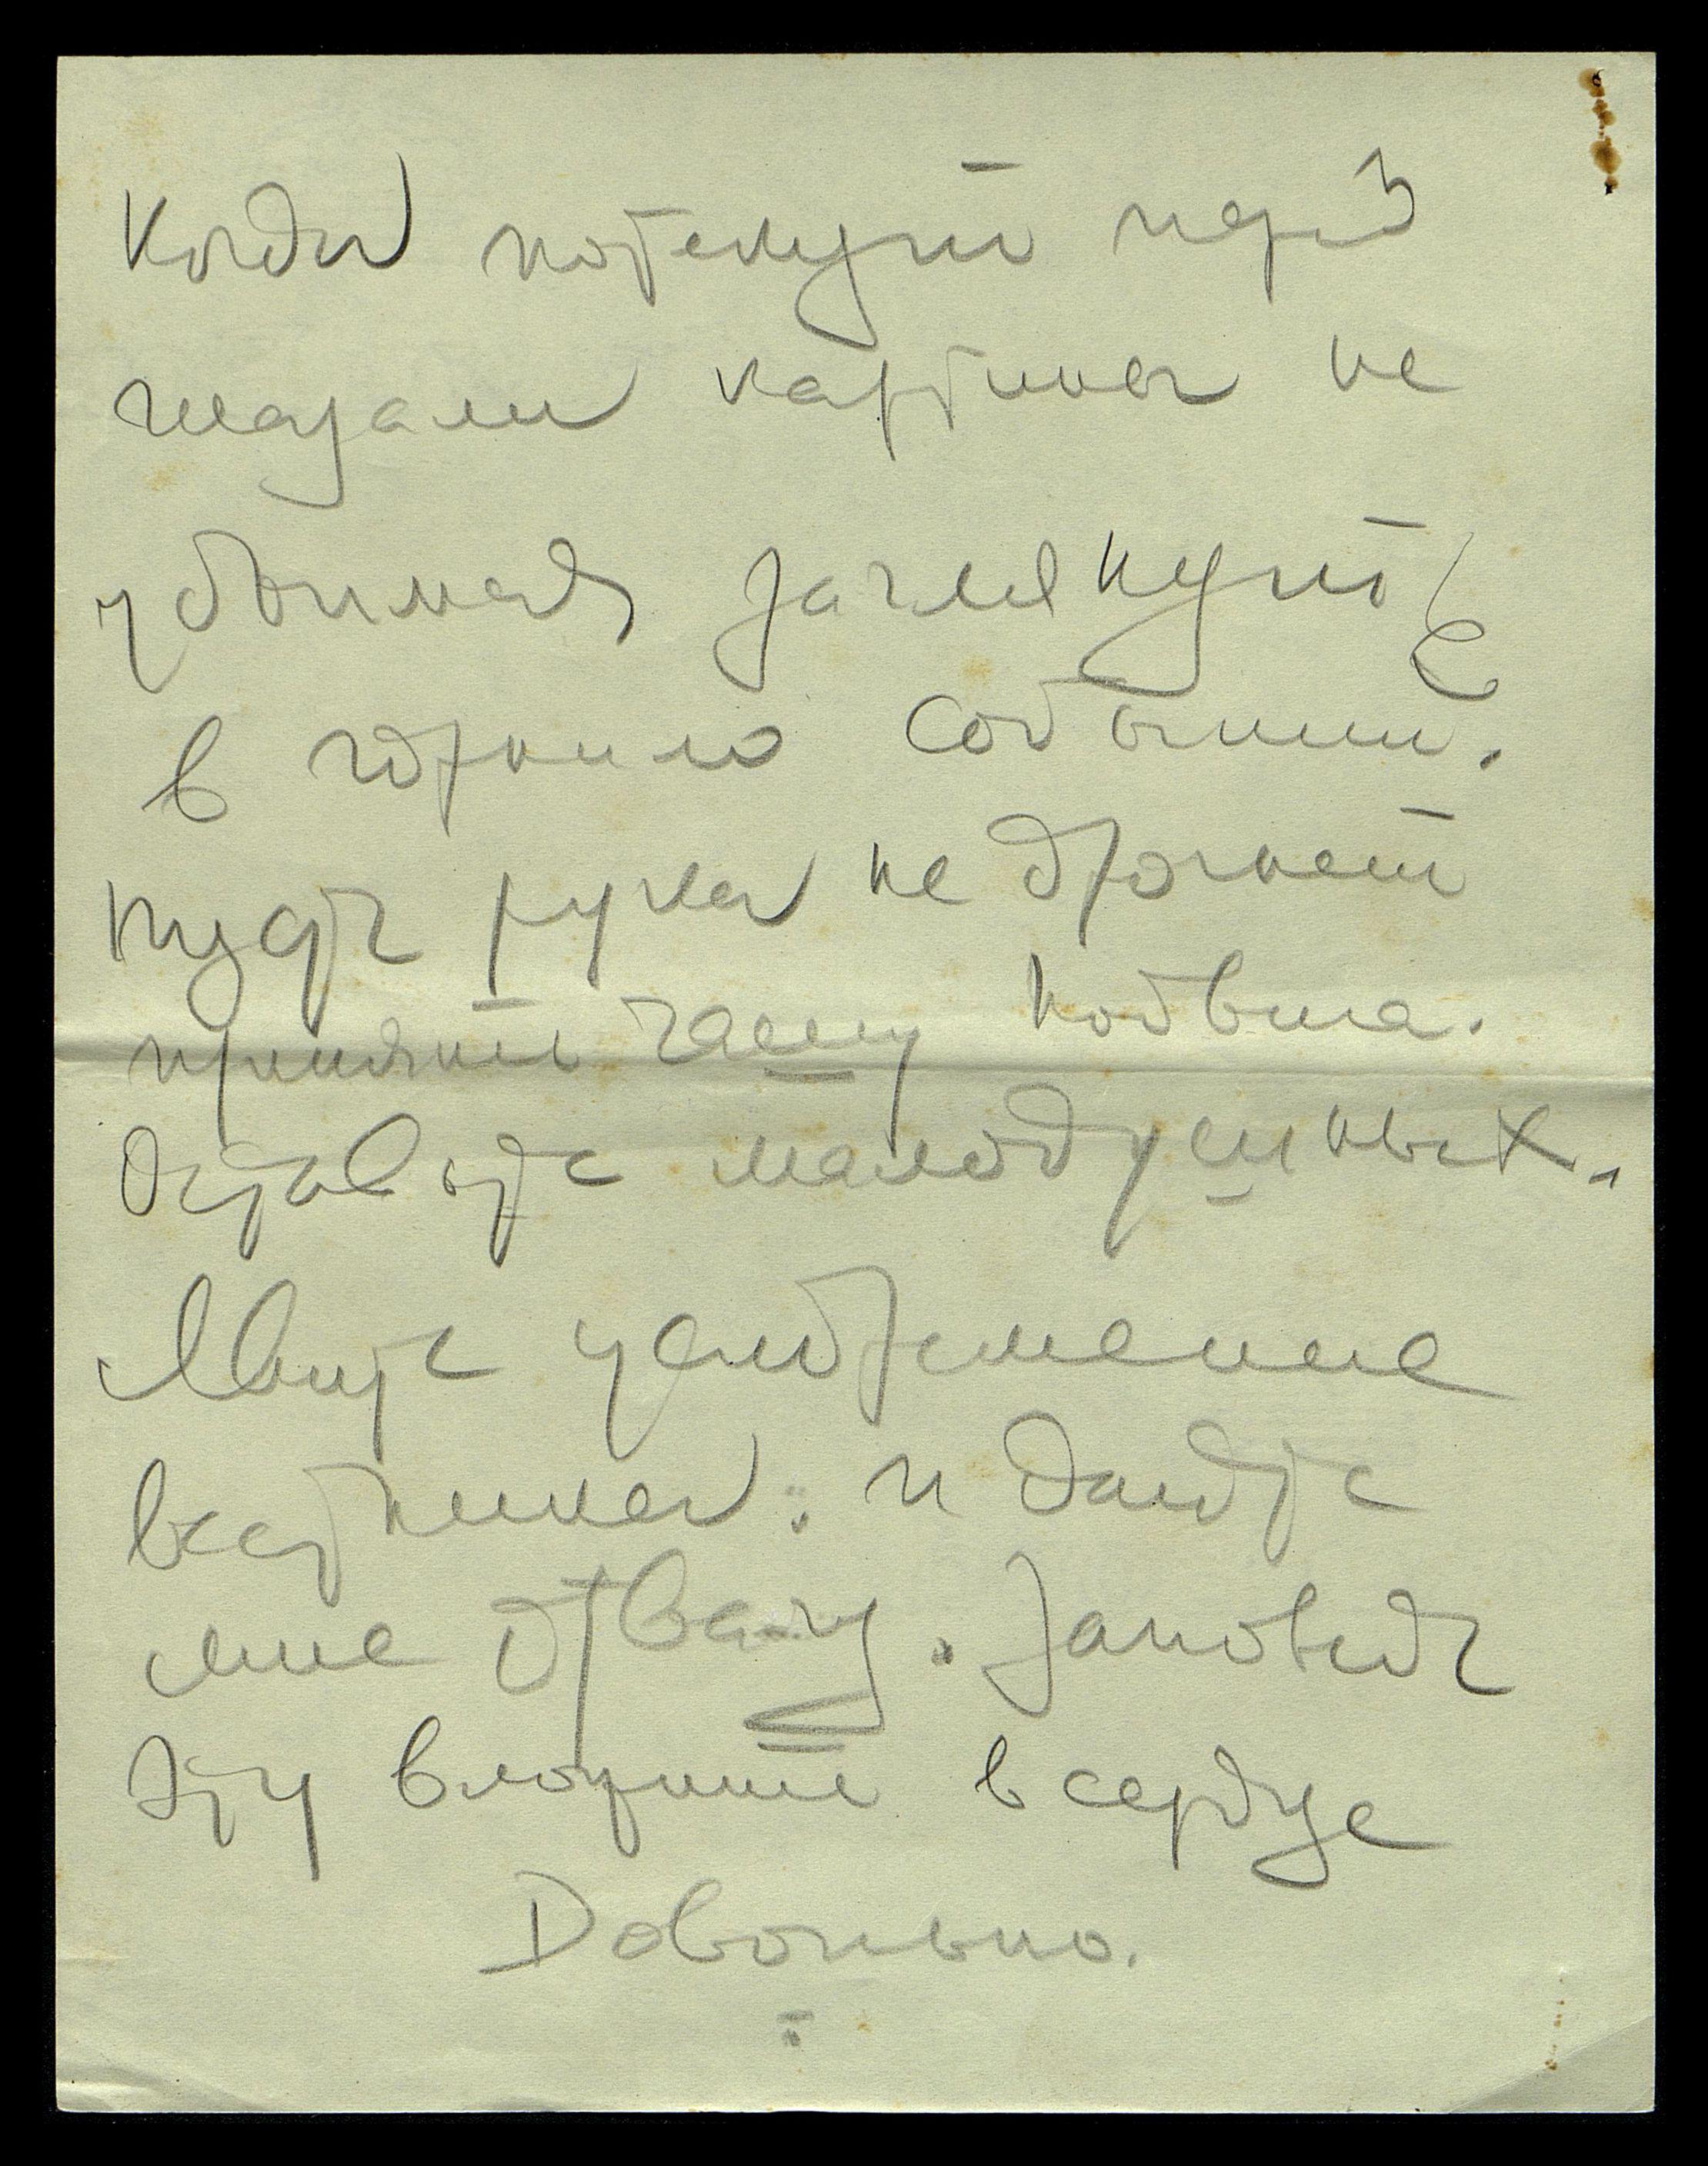 Когда потекут перед
глазами картины не
убоимся заглянуть
в горнило событий.
пусть рука не дрогнет
принять чашу подвига.
Оставьте малодушных.
Явите устремление
всадника. и дайте
мне отвагу. Заповедь
эту вложите в сердце
Довольно.